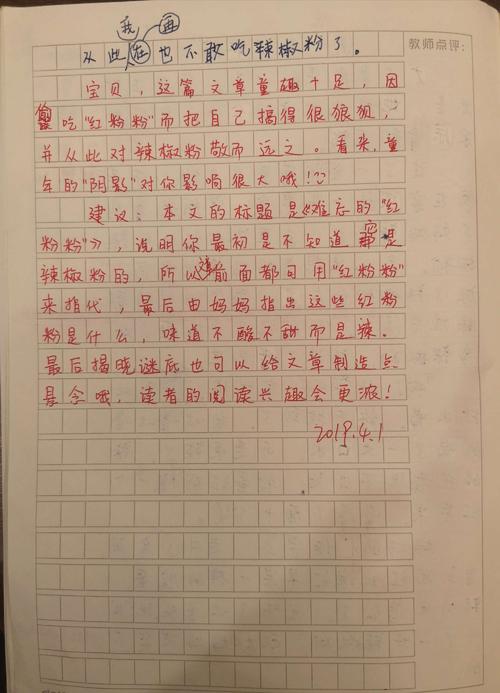 我 再
从此在也不敢吃辣椒粉了。
教师点评:
宝贝,这篇文章童趣十足,因
偷吃"红粉粉"而把自己搞得很狼狈,
并从此对辣椒粉敬而远之。看来,童
年的"阴影"对你影响很大哦!
建议:本文的标题是《难忘的"红
粉粉"》,说明你最初是不知道这是
辣椒粉的,所以前面都可用"红粉粉"
来指代,最后由妈妈指出这些红粉
粉是什么,味道不酸不甜而是辣.
最后揭晓谜底也可以给文章制造点
悬念哦,读者的阅读兴趣会更浓!
2019.4.1